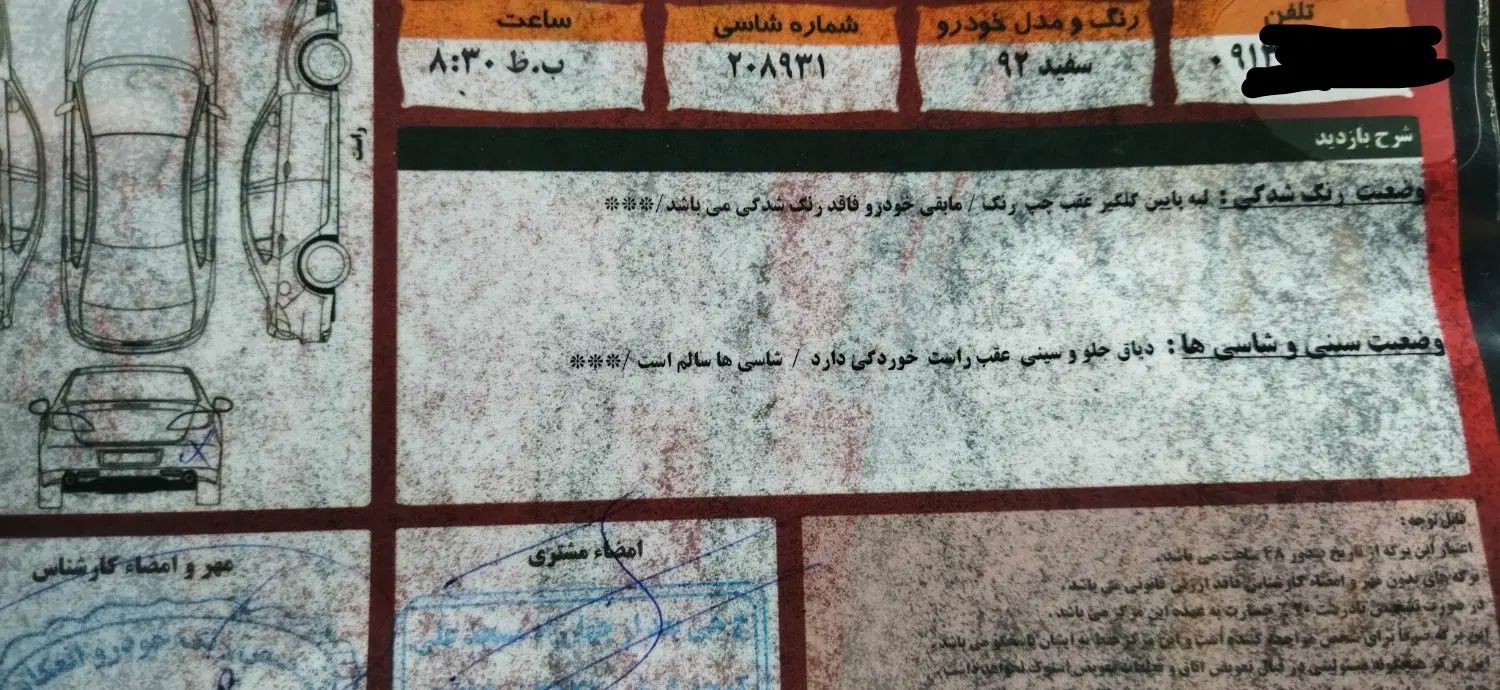 تلفن
۰۹۱۳
رنگ و مدل خودرو
سفید ۹۲
شماره شاسی
۲۰۸۹۳۱
ساعت
۸:۳۰ ب.ظ
راست
شرح بازدید
وضعیت رنگ شدگی : لبه پایین گلگیر عقب چپ رنگ / مابقی خودرو فاقد رنگ شدگی می باشد/***
وضعیت سینی و شاسی ها : دیاق جلو و سینی عقب راست خوردگی دارد / شاسی ها سالم است /***
قابل توجه :
اعتبار این برگه از تاریخ صدور ۴۸ ساعت می باشد.
برگه های بدون مهر و امضاء کارشناس فاقد ارزش قانونی می باشد.
در صورت تشخیص نادرست ۲۰٪ خسارت به عهده این مرکز می باشد.
این برگه صرفا برای شخص مراجعه کننده است و این مرکز فقط به ایشان پاسخگو می باشد.
این مرکز هیچگونه مسئولیتی در قبال تعویض اتاق و قطعات تعویض استوک نخواهد داشت.
امضاء مشتری
مهر و امضاء کارشناس
خودرو